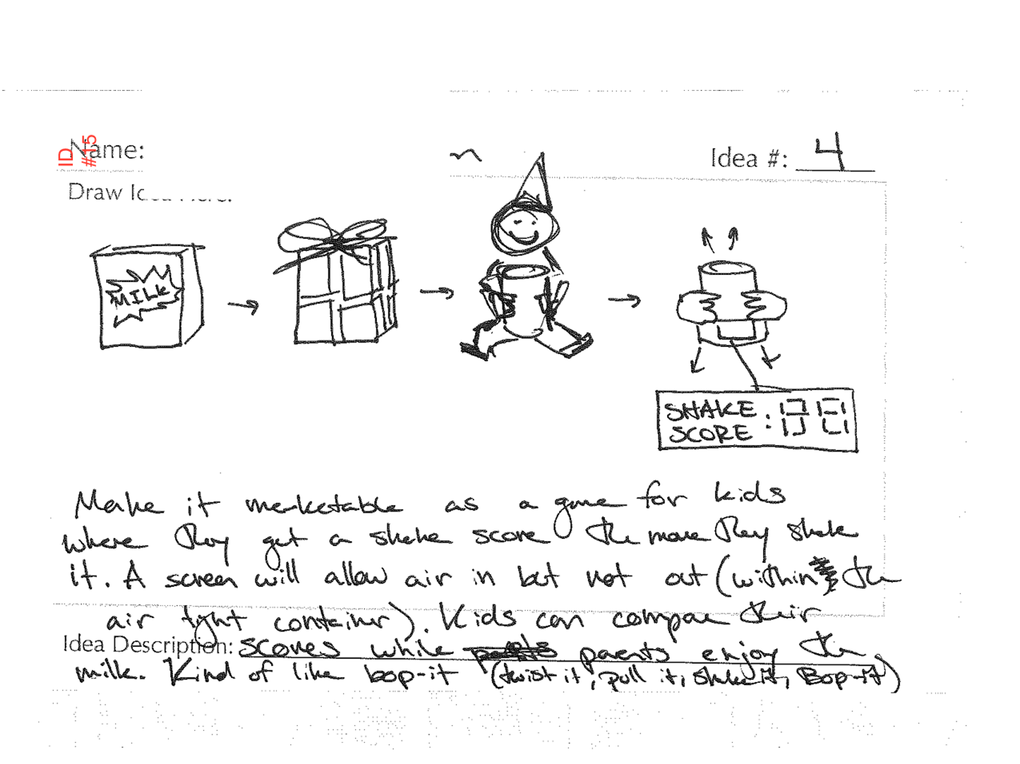 ID #15
Name:
Idea #: 4
Draw Idea Here:
MILK
SHAKE SCORE : 00
Make it marketable as a game for kids
where they get a shake score the more they shake
it. A screen will allow air in but not out (within the
air tight container). Kids can compare their
Idea Description: scores while parents enjoy the
milk. Kind of like bop-it (twist it, pull it, shake it, Bop-it)